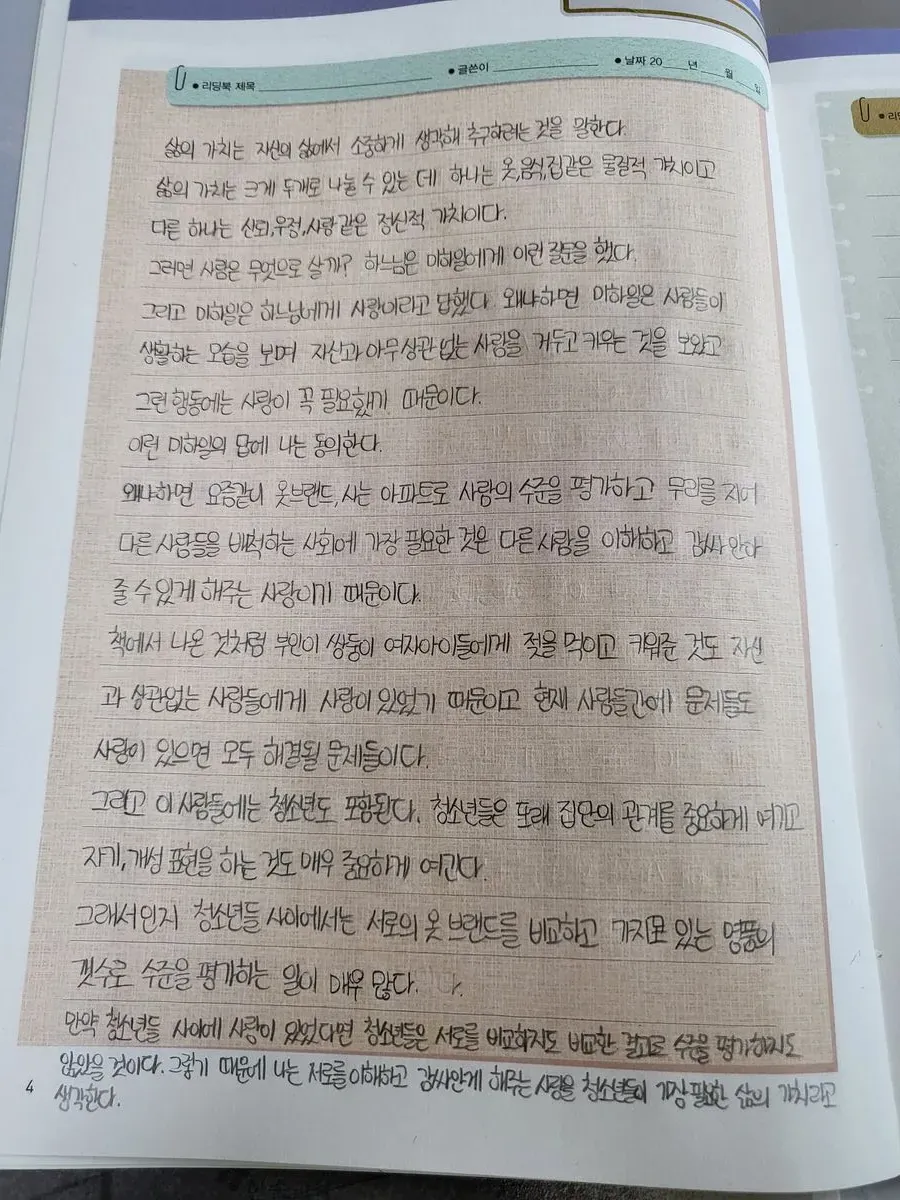 리딩북 제목 글쓴이 날짜 20 년 월 일
삶의 가치는 자신의 삶에서 소중하게 생각해 추구하려는 것을 말한다.
삶의 가치는 크게 두개로 나눌 수 있는 데 하나는 옷,음식,집같은 물질적 가치이고
다른 하나는 신뢰,우정,사랑같은 정신적 가치이다.
그러면 사람은 무엇으로 살까? 하느님은 미하일에게 이런 질문을 했다.
그리고 미하일은 하느님에게 사랑이라고 답했다 왜냐하면 미하일은 사람들이
생활하는 모습을 보며 자신과 아무 상관 없는 사람을 거두고 키우는 것을 보았고
그런 행동에는 사랑이 꼭 필요했기 때문이다.
이런 미하일의 답에 나는 동의한다.
왜냐하면 요즘같니 옷브랜드,사는 아파트로 사람의 수준을 평가하고 무리를 지어
다른 사람들을 배척하는 사회에 가장 필요한 것은 다른 사람을 이해하고 감싸 안아
줄 수 있게 해주는 사랑이기 때문이다.
책에서 나온 것처럼 부인이 쌍둥이 여자아이들에게 젖을 먹이고 키워준 것도 자신
과 상관없는 사람들에게 사랑이 있었기 때문이고 현재 사람들간에 문제들도
사랑이 있으면 모두 해결될 문제들이다.
그리고 이 사람들에는 청소년도 포함된다. 청소년들은 또래 집안의 관계를 중요하게 여기고
자기,개성 표현을 하는 것도 매우 중요하게 여긴다.
그래서인지 청소년들 사이에서는 서로의 옷 브랜드를 비교하고 가지고 있는 명품의
갯수로 수준을 평가하는 일이 매우 많다.
만약 청소년들 사이에 사랑이 있었다면 청소년들은 서로를 비교하지도 비교한 결과로 수준을 평가하지도
않았을 것이다. 그렇기 때문에 나는 서로를 이해하고 감싸안게 해주는 사랑을 청소년들이 가장 필요한 삶의 가치라고
생각한다.
4